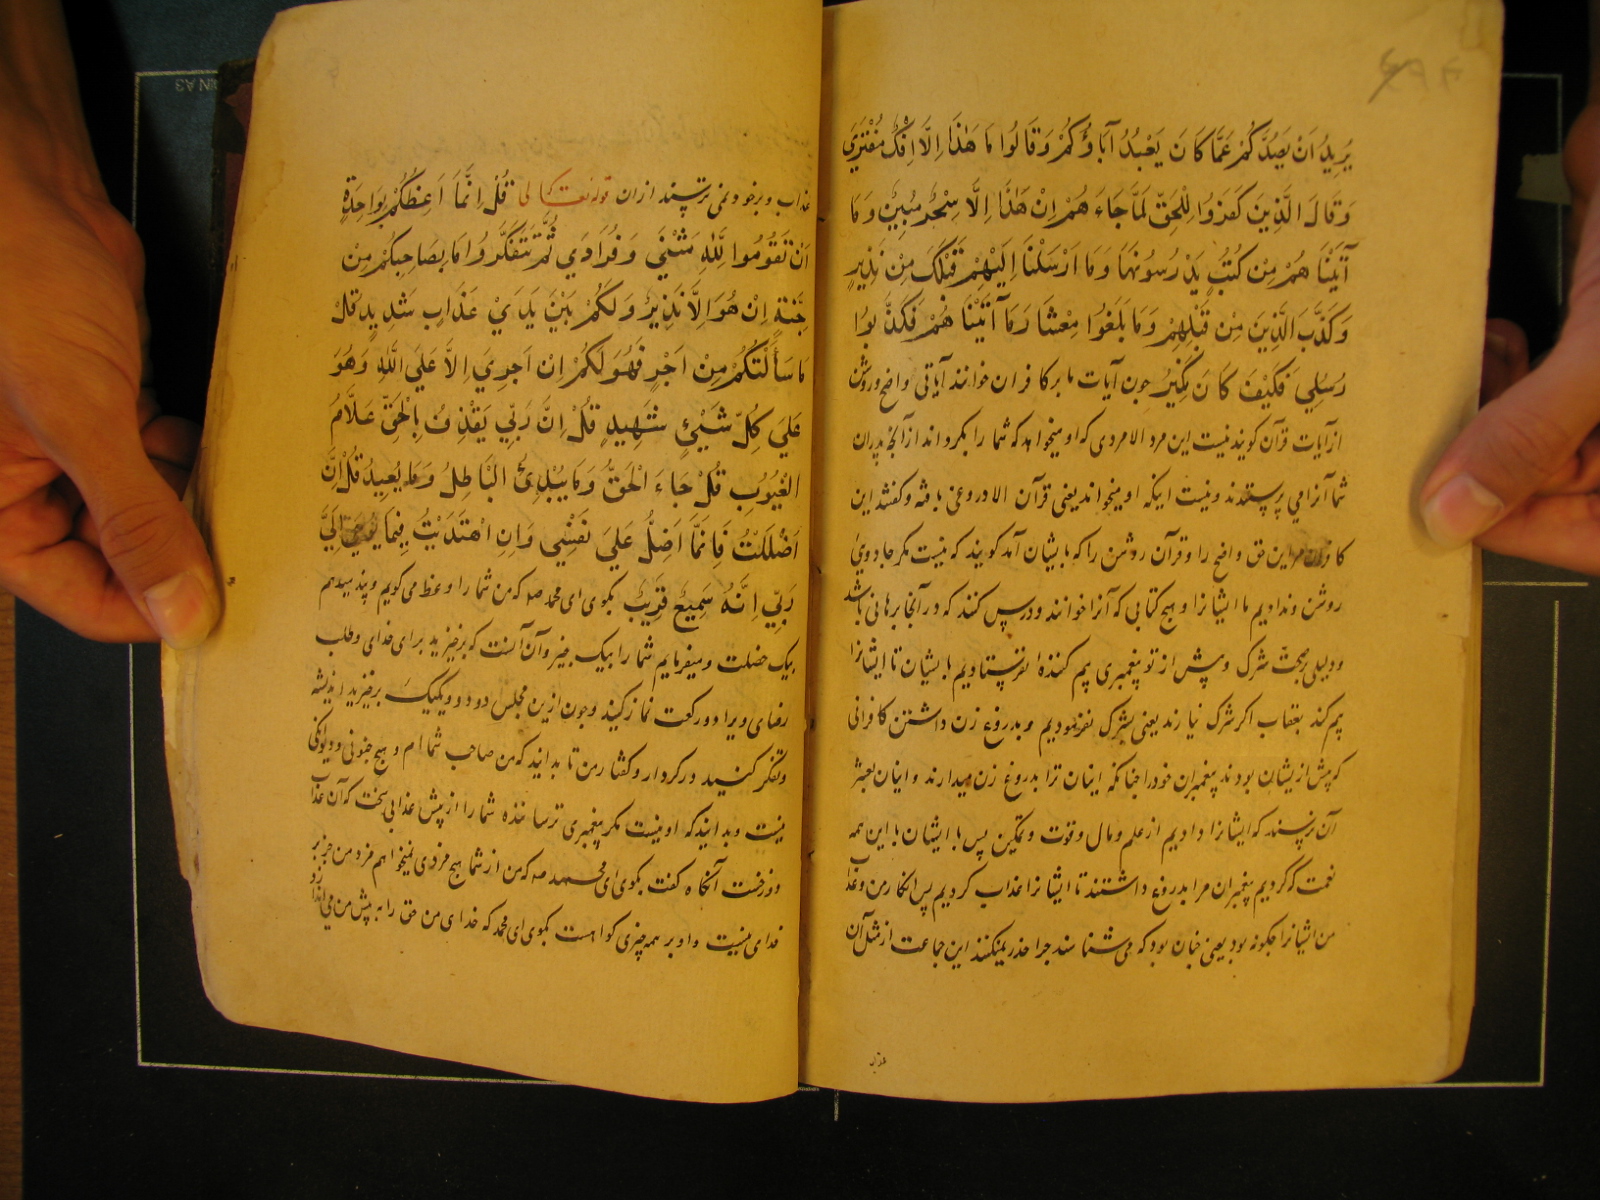 يُرِيدُ اَنْ يَصُدَّكُمْ عَمَّا كَا نَ يَعْبُدُ آبَاؤُكُمْ وَقَالُوا مَا هٰذَا اِلَّا اِفْكٌ مُفْتَرًى
وَقَالَ الَّذِينَ كَفَرُوا لِلْحَقِّ لَمَّا جَاءَ هُمْ اِنْ هٰذَا اِلَّا سِحْرٌ مُبِينٌ وَمَا
آتَيْنَا هُمْ مِنْ كُتُبٍ يَدْرُسُونَهَا وَمَا اَرْسَلْنَا اِلَيْهِمْ قَبْلَكَ مِنْ نَذِيرٍ
وَكَذَّبَ الَّذِينَ مِنْ قَبْلِهِمْ وَمَا بَلَغُوا مِعْشَارَ مَا آتَيْنَا هُمْ فَكَذَّبُوا
رُسُلِي فَكَيْفَ كَا نَ نَكِيرِ چون آیات ما بر کافران خوانند آیاتی واضح و روشن
از آیات قرآن کویند نیست این مرد الا مردی که او میخواهد که شما را بکرداند از آنچه پدران
شما آنرا می پرستیدند و نیست اینکه او میخواند یعنی قرآن الا دروغی بافته و کفتند این
کافران مر این حق واضح را و قرآن روشن را که بایشان آمد کویند که نیست مکر جادوی
روشن و ندادیم ما ایشانرا و هیچ کتابی که آنرا خوانند و درس کنند که در آنجا برهانی باشد
و دلیلی بر صحت شرک و پیش از تو پیغمبری بیم کننده نفرستادیم بایشان تا ایشانرا
بیم کند بعقاب اکر شرک نیارند یعنی بشرک نفرمودیم و بدروغ زن داشتن کافرانی
که پیش از یشان بودند پیغمبران خود را چنانکه اینان ترا بدروغ زن میدارند و اینان بعشر
آن نرسیدند که ایشانرا دادیم از علم و مال و قوت و تمکین پس با ایشان با این همه
نعمت که کردیم پیغمبران مرا بدروغ داشتند تا ایشانرا عذاب کردیم پس انکار من و عذاب
من ایشانرا چکونه بود یعنی چنان بود که می شناسند چرا حذر نمیکنند این جماعت از مثل آن
عذاب
عذاب و بر خود نمی ترسند ازان قوله تعالی قُلْ اِنَّمَا اَعِظُكُمْ بِوَاحِدَةٍ
اَنْ تَقُومُوا لِلّٰهِ مَثْنَي وَفُرَادَي ثُمَّ تَتَفَكَّرُوا مَا بِصَاحِبِكُمْ مِنْ
جِنَّةٍ اِنْ هُوَ اِلَّا نَذِيرٌ وَلَكُمْ بَيْنَ يَدَيْ عَذَابٍ شَدِيدٍ قُلْ
مَا سَأَلْتُكُمْ مِنْ اَجْرٍ فَهُوَ لَكُمْ اِنْ اَجْرِيَ اِلَّا عَلَي اللّٰهِ وَهُوَ
عَلَي كُلِّ شَيْئٍ شَهِيدٍ قُلْ اِنَّ رَبِّي يَقْذِفُ بِالْحَقِّ عَلَّامُ
الْغُيُوبِ قُلْ جَاءَ الْحَقُّ وَمَا يُبْدِئُ الْبَاطِلُ وَمَا يُعِيدُ قُلْ اِنْ
اَضْلَلْتُ فَاِنَّمَا اَضِلُّ عَلَي نَفْسِي وَاِنِ اهْتَدَيْتُ فِيمَا يُوحِي اِلَيَّ
رَبِّي اِنَّهُ سَمِيعٌ قَرِيبٌ بکوی ای محمد صلا که من شما را وعظ می کویم و پند میدهم
بیک خصلت و میفرمایم شما را بیک چیز و آن آنست که برخیزید برای خدای و طلب
رضای ویرا دو رکعت نماز کنید و چون ازین مجلس دو دو و یک یک برخیزید اندیشه
و تفکر کنید در کردار و کفتار من تا بدانید که من صاحب شماام و هیچ جنونی و دیوانکی
نیست و بدانید که او نیست مکر پیغمبری ترساننده شما را از پیش عذابی سخت که آن عذاب
دوزخست آنکاه کفت بکوی ای محمد صه که من از شما هیچ مزدی نمیخواهم مزد من جز بر
خدای نیست و او بر همه چیزی کواهست بکوی ای محمد که خدای من حق را به پیش من می اندازد